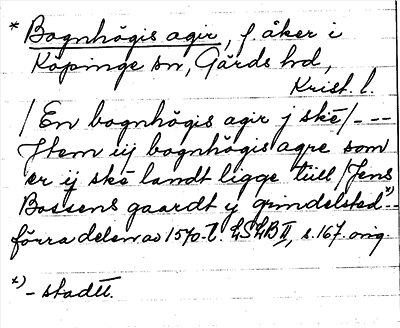 * Bognhögis agir, f. åker i
Köpinge sn, Gärds hd,
Krist. l.
/ En bognhögis agir j skē / - - -
Jtem iij bognhögis agre som
er ij skē landt ligge tiill / Jens
Bossens gaardt ij grindelsted x) - -
förra delen av 1570-t. LSLB II, s. 167. orig.
x) - stadtt.